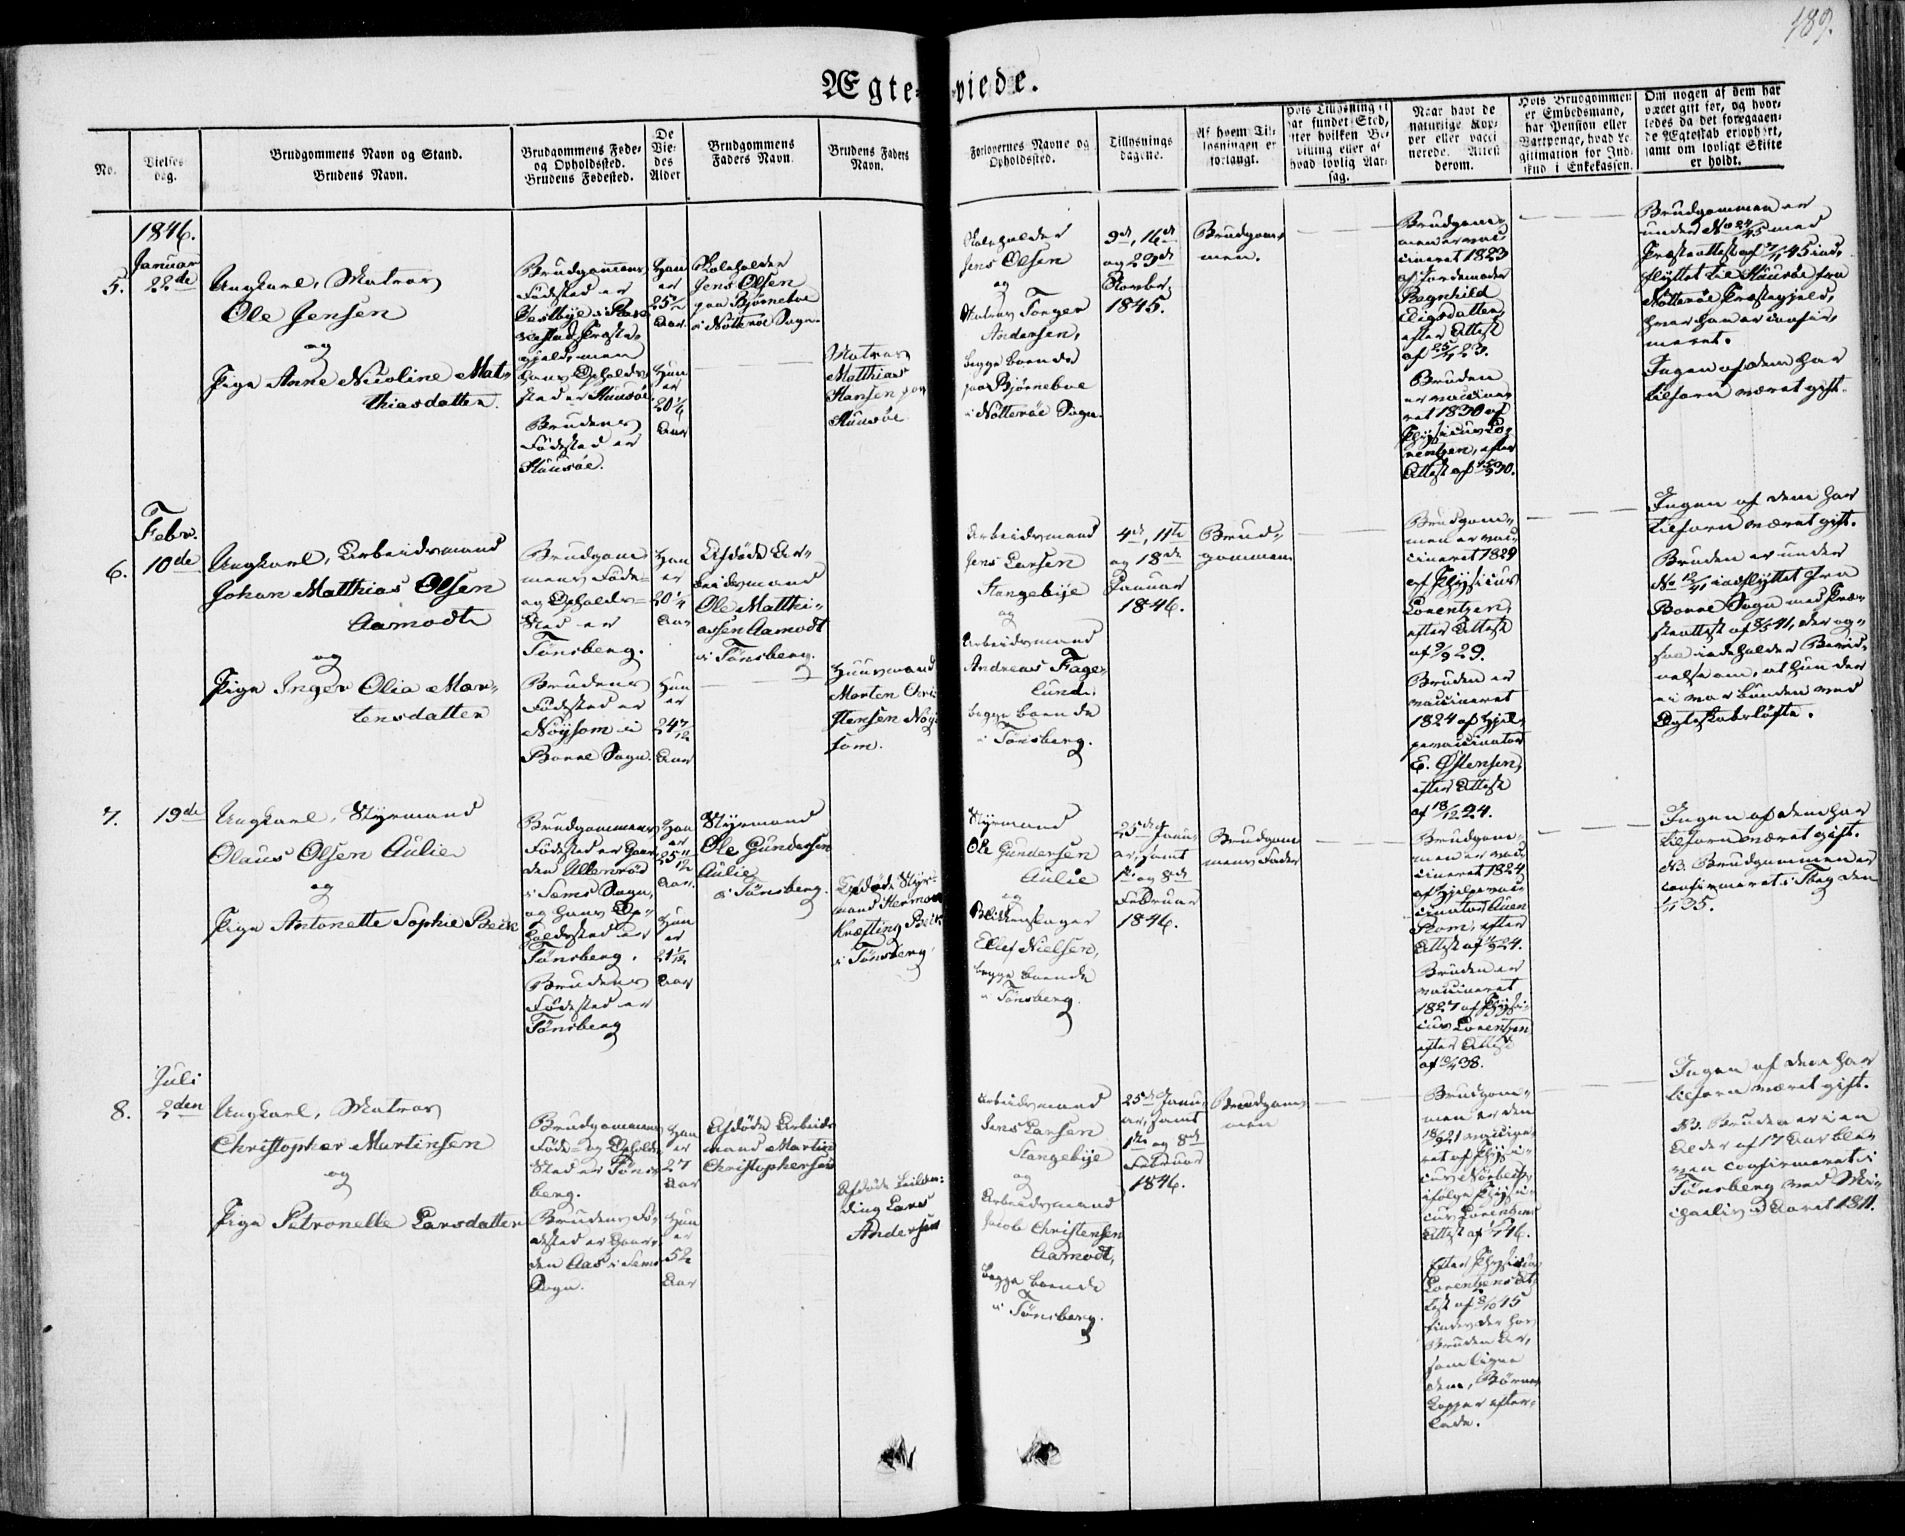 189.
Ægte-viede.
No.
Vielses dag.
Brudgommens Navn og Stand.
Brudens Navn.
Brudgommens Føde-
og Opholdsted.
Brudens Fødested.
De
Vie-
des
Alder
Brudgommens
Faders Navn.
Brudens Faders
Navn.
Forlovernes Navne og
Opholdsted.
Tillysnings
dagene.
Af hvem Til-
lysningen er
forlangt.
Hvis Tillysning ei
har fundet Sted,
efter hvilken Be-
villing eller af
hvad lovlig Aar-
sag.
Naar havt de
naturlige Kop-
per eller vacci
nerede. Attest
derom.
Hvis Brudgommen
er Embedsmand,
har Pension eller
Vartpenge, hvad Le
gitimation for Ind
skud i Enkekassen.
Om nogen af dem har
været gift før, og hvor-
ledes da det foregaaen-
de Ægteskab er ophørt,
samt om lovligt Skifte
er holdt.
1846.
Januar
5.
22de
Ungkarl, Matros
Ole Jensen
og
Pige Anne Nicoline Mat-
thiasdatter.
Brudgommens
Fødested er
Vestbye i
gjeld, men
hans Opholds
sted er Huusøe.
Brudens
Fødested er
Huusøe.
Han
er
Aar.
Hun
er
20 1/6
Aar
Skoleholder
Jens Olsen
paa Bjørneboe
i Nøtterøe Sogn.
Matros
Matthias
Hansen paa
Huusøe
Skoleholder
Jens Olsen
og
Matros Torger
Andersen,
begge boende
paa Bjørneboe
i Nøtterøe Sogn.
9de, 16de
og 23de
Novbr.
1845.
Brudgom-
men.
Brudgom-
men er vac-
cineret 1823
af Jordemoder
Ragnhild
efter Attest
af 25/1 23.
Bruden
er vaccine-
ret 1830 af
Physicus Lo-
rentzen, efter
Attest af
Brudgommen er
under No 24/45 med
Præsteattest af
flyttet til Huusøe fra
Nøtterøe Præstegjeld,
hvor han er confir-
meret.
Ingen af dem har
tilforn været gift.
Febr.
6.
10de
Ungkarl, Arbeidsmand
Johan Matthias Olsen
Aamodt
og
Pige Inger Olia Mor-
tensdatter
Brudgom-
mens Føde-
og Opholds-
Sted er
Tønsberg.
Brudens
Fødested er
Nøysom i
Borre Sogn.
Han
er
20 1/4
Aar
Hun
er
24 7/12
Aar
Afdøde Ar-
beidsmand
Ole Matthi-
assen Aamodt
i Tønsberg.
Huusmand
Morten Chri-
stensen Nøy-
som.
Arbeidsmand
Jens Larsen
Stangebye
og
Arbeidsmand
Andreas Fager-
lund,
begge boende
i Tønsberg.
4de, 11te
og 18de
Januar
1846.
Brud-
gommen
Brudgom-
men er vac-
cineret 1829
af Physicus
Lorentzen,
efter Attest
af 9/9 29.
Bruden er
vaccineret
1824 af Hjæl-
pevaccinator
E. Østensen,
efter Attest
af 18/12 24.
Ingen af dem har
tilforn været gift.
Bruden er under
No 12/41 indflyttet fra
Borre Sogn med Præ-
steattest af 8/5 41, der og-
saa indeholder Bevid-
nelse om, at hun der
ei var bunden ved
Egteskabsløfte.
7.
19de
Ungkarl, Styrmand
Olaus Olsen Aulie
og
Pige Antonette Sophie Beck
Brudgommens
Fødested er Gaar-
den Ullenrød
i Sems Sogn,
og hans Op-
holdssted er
Tønsberg.
Brudens
Fødested er
Tønsberg
Han
er
25 11/12
Aar.
Hun
er
21 1/12
Aar
Styrmand
Ole Gundersen
Aulie
i Tønsberg.
Afdøde Styr-
mand Herman
Kræfting Beck
i Tønsberg
Styrmand
Ole Gundersen
Aulie
og
Blikkenslager
Ellef Nielsen,
begge boende
i Tønsberg.
25de Janu-
ar, samt
1ste og 8de
Februar
1846.
Brudgom-
mens Fader
Brudgom-
men er vac-
cineret 1824
af Hjelpevac-
cinator Auen
Rom, efter
Attest af
Bruden er
vaccineret
1827 af Physi-
cus Lorentzen
efter Attest
af
Ingen af dem har
tilforn været gift.
NB. Brudgommen er
confirmeret i Tbeg den
Juli
8.
2den
Ungkarl, Matros
Christopher Martinsen
og
Pige Petronelle Larsdatter
Brudgommens
Føde- og Opholds
Sted er Tøns-
berg.
Brudens Fø-
dested er Gaar-
den Aas i Sems
Sogn.
Han
er
27
Aar
Hun
er
52
Aar
Afdøde Arbeids
mand Martin
Christophersen
Afdøde
Lars
Andersen
Arbeidsmand
Jens Larsen
Stangebye
og
Arbeidsmand
Jacob Christensen
Aamodt,
begge boende
i Tønsberg.
25de Janu-
ar, samt
1ste og 8de
Februar
1846.
Brudgom-
men
Brudgom-
men er den
vaccine-
ret af Physi-
cus Nørbech,
ifølge Physi-
cus Lorentzens
Attest af 46.
Efter Physicus
Lorentzens At-
test af 45
findes der hos
Bruden Ar,
som ligne
dem, Børne-
kopper efter-
lade.
Ingen af dem har
tilforn været gift.
NB. Bruden er i en
Alder af 17 Aar ble-
ven confirmeret i
Tønsberg ved Mi-
chaelis i Aaret 1811.